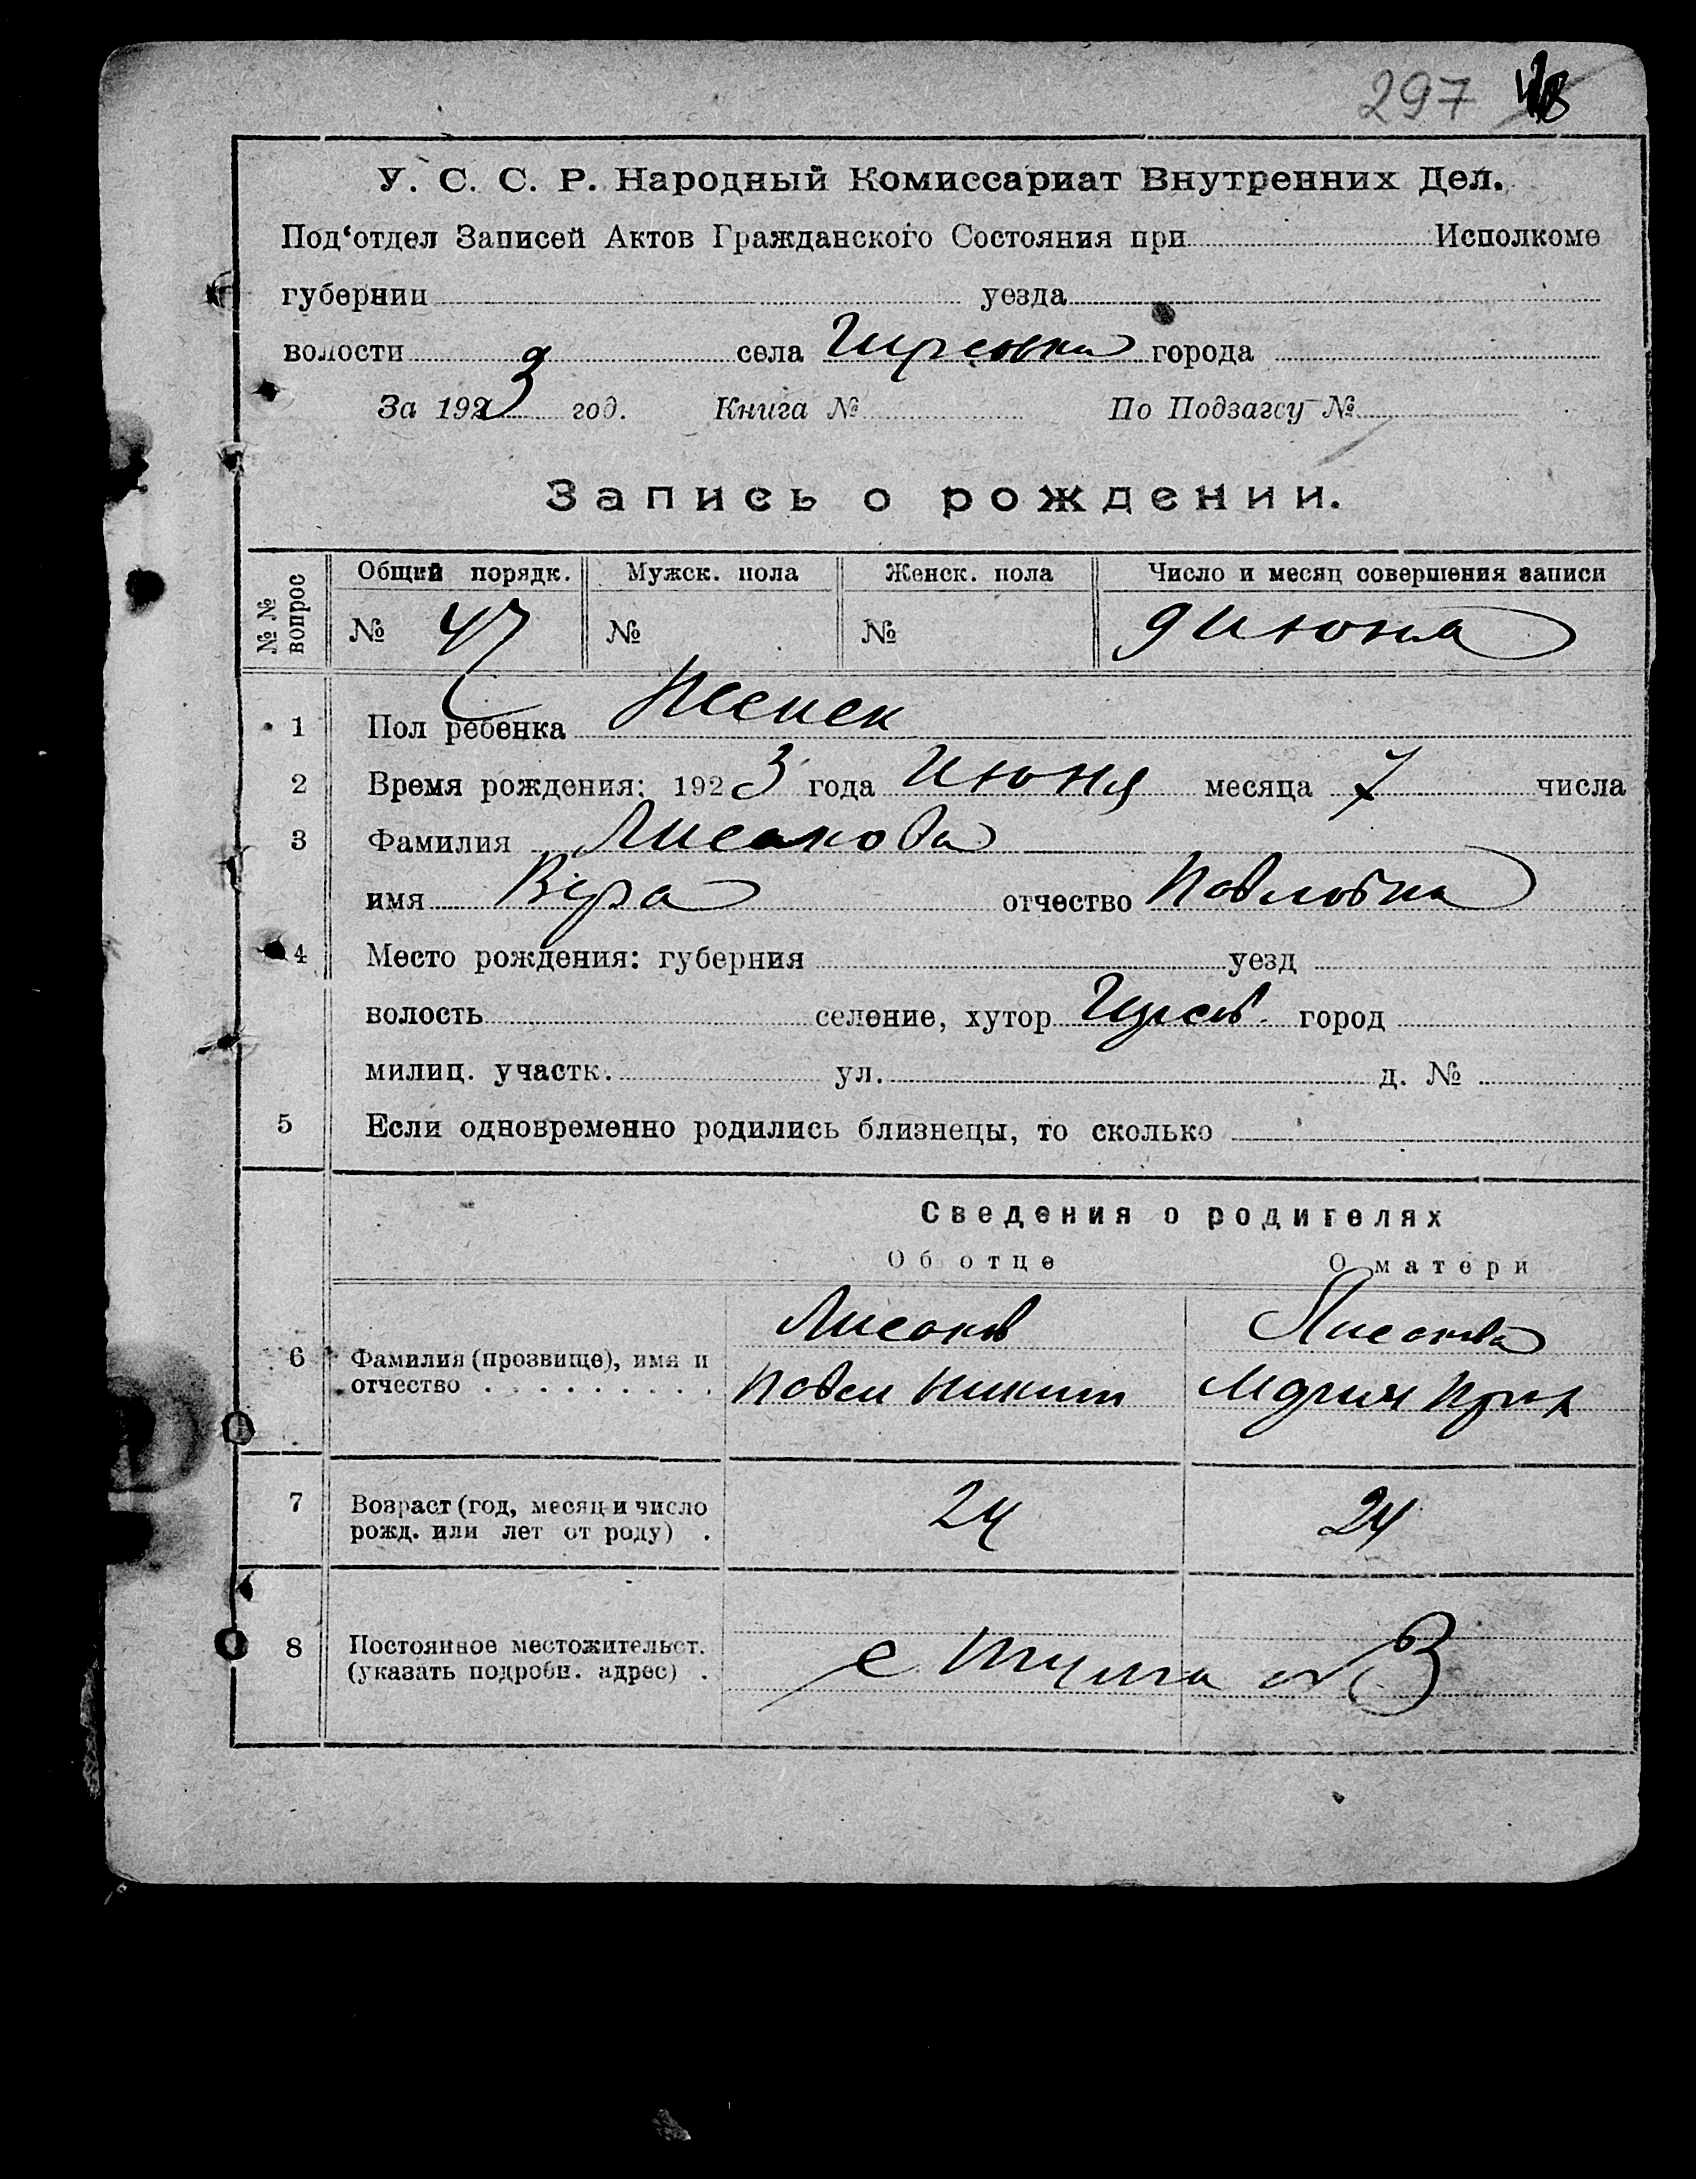 297
У. С. С. Р. Народный Комиссариат Внутренних Дел.
Под‘отдел Записей Актов Гражданского Состояния при Исполкоме
губернии уезда
волости села города
За 1923 год. Книга № По Подзагсу №
Запись о рождении.
№№ вопрос Общий порядк. Мужск. пола Женск. пола Число и месяц совершения записи
№ 47 № № 9 Июня
1 Пол ребенка Женск
2 Время рождения: 1923 года Июня месяца 7 числа
3 Фамилия Лисакова
имя Вера отчество Павловна
4 Место рождения: губерния уезд
волость селение, хутор город
милиц. участк. ул. д. №
5 Если одновременно родились близнецы, то сколько
Сведения о родителях
Об отце О матери
Лисаков Лисакова
6 Фамилия (прозвище), имя и
отчество . . . . . . . . . Павел Никит Мария
7 Возраст (год, месяц и число
рожд. или лет от роду) . 24 24
8 Постоянное местожительст.
(указать подробн. адрес) . с.